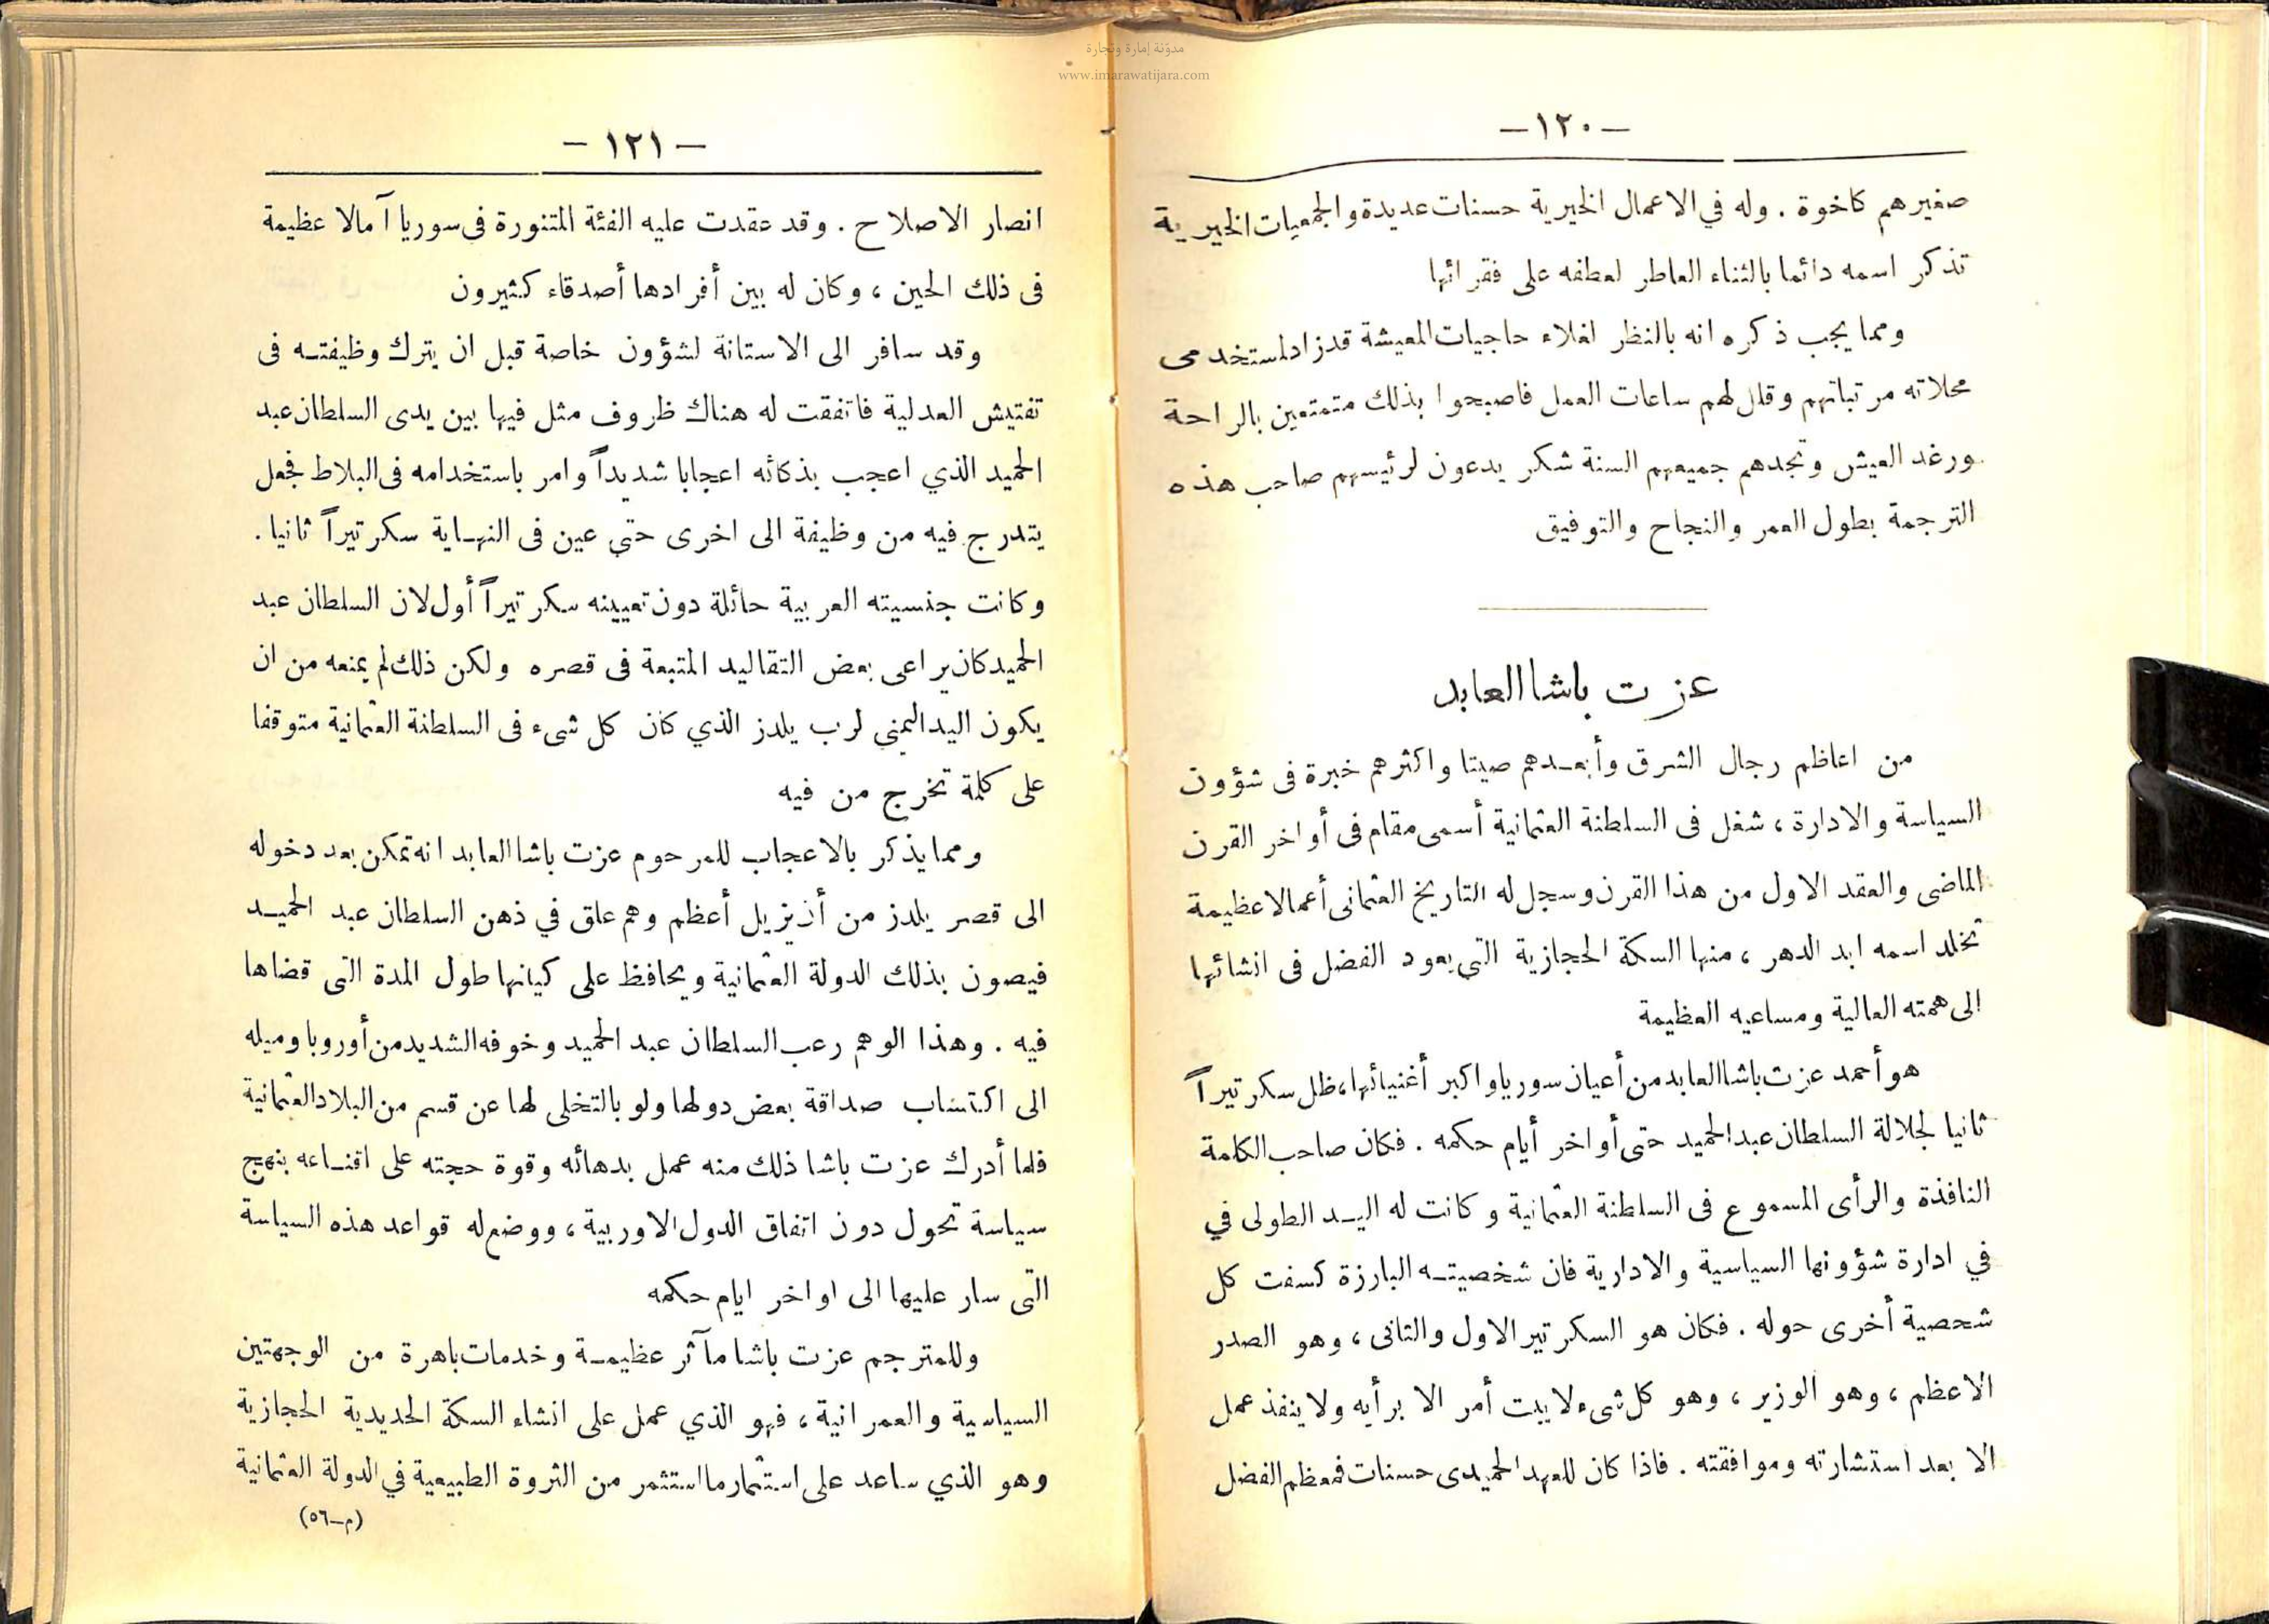 مدونة إمارة وتجارة
www.imarawatijara.com
—١٢٠—
صغيرهم كاخوة . وله في الاعمال الخيرية حسنات عديدة والجمعيات الخيرية
تذكر اسمه دائما بالثناء العاطر لعطفه على فقرائها
ومما يجب ذكره انه بالنظر لغلاء حاجيات المعيشة قد زاد لمستخدمى
محلاته مرتباتهم وقلل لهم ساعات العمل فاصبحوا بذلك متمتعين بالراحة
ورغد العيش وتجدهم جميعهم السنة شكر يدعون لرئيسهم صاحب هذه
الترجمة بطول العمر والنجاح والتوفيق
عزت باشا العابد
من اعاظم رجال الشرق وأبعدهم صيتا واكثرهم خبرة فى شؤون
السياسة والادارة ، شغل فى السلطنة العثمانية أسمى مقام فى أواخر القرن
الماضى والعقد الاول من هذا القرن وسجل له التاريخ العثمانى أعمالا عظيمة
تخلد اسمه ابد الدهر ، منها السكة الحجازية التى يعود الفضل فى انشائها
الى همته العالية ومساعيه العظيمة
هو أحمد عزت باشا العابد من أعيان سوريا واكبر أغنيائها، ظل سكرتيراً
ثانيا لجلالة السلطان عبد الحميد حتى أواخر أيام حكمه . فكان صاحب الكلمة
النافذة والرأى المسموع فى السلطنة العثمانية وكانت له اليد الطولى في
في ادارة شؤونها السياسية والادارية فان شخصيته البارزة كسفت كل
شخصية أخرى حوله . فكان هو السكرتير الاول والثانى ، وهو الصدر
الاعظم ، وهو الوزير ، وهو كل شىء لا يبت أمر الا برأيه ولا ينفذ عمل
الا بعد استشارته وموافقته . فاذا كان للعهد الحميدى حسنات فمعظم الفضل
— ١٢١ —
انصار الاصلاح . وقد عقدت عليه الفئة المتنورة فى سوريا آمالا عظيمة
فى ذلك الحين ، وكان له بين أفرادها أصدقاء كثيرون
وقد سافر الى الاستانة لشؤون خاصة قبل ان يترك وظيفته فى
تفتيش العدلية فاتفقت له هناك ظروف مثل فيها بين يدى السلطان عبد
الحميد الذي اعجب بذكائه اعجابا شديداً وامر باستخدامه فى البلاط فجعل
يتدرج فيه من وظيفة الى اخرى حتى عين فى النهاية سكرتيراً ثانيا .
وكانت جنسيته العربية حائلة دون تعيينه سكرتيراً أول لان السلطان عبد
الحميد كان يراعى بعض التقاليد المتبعة فى قصره ولكن ذلك لم يمنعه من ان
يكون اليد اليمنى لرب يلدز الذي كان كل شىء فى السلطنة العثمانية متوقفا
على كلمة تخرج من فيه
ومما يذكر بالاعجاب للمرحوم عزت باشا العابد انه تمكن بعد دخوله
الى قصر يلدز من أن يزيل أعظم وهم علق في ذهن السلطان عبد الحميد
فيصون بذلك الدولة العثمانية ويحافظ على كيانها طول المدة التى قضاها
فيه . وهذا الوهم رعب السلطان عبد الحميد وخوفه الشديد من أوروبا وميله
الى اكتساب صداقة بعض دولها ولو بالتخلى لها عن قسم من البلاد العثمانية
فلما أدرك عزت باشا ذلك منه عمل بدهائه وقوة حجته على اقناعه بنهج
سياسة تحول دون اتفاق الدول الاوربية ، ووضع له قواعد هذه السياسة
التى سار عليها الى اواخر ايام حكمه
وللمترجم عزت باشا مآثر عظيمة وخدمات باهرة من الوجهتين
السياسية والعمرانية ، فهو الذي عمل على انشاء السكة الحديدية الحجازية
وهو الذي ساعد على استثمار ما استثمر من الثروة الطبيعية في الدولة العثمانية
(م—٥٦)